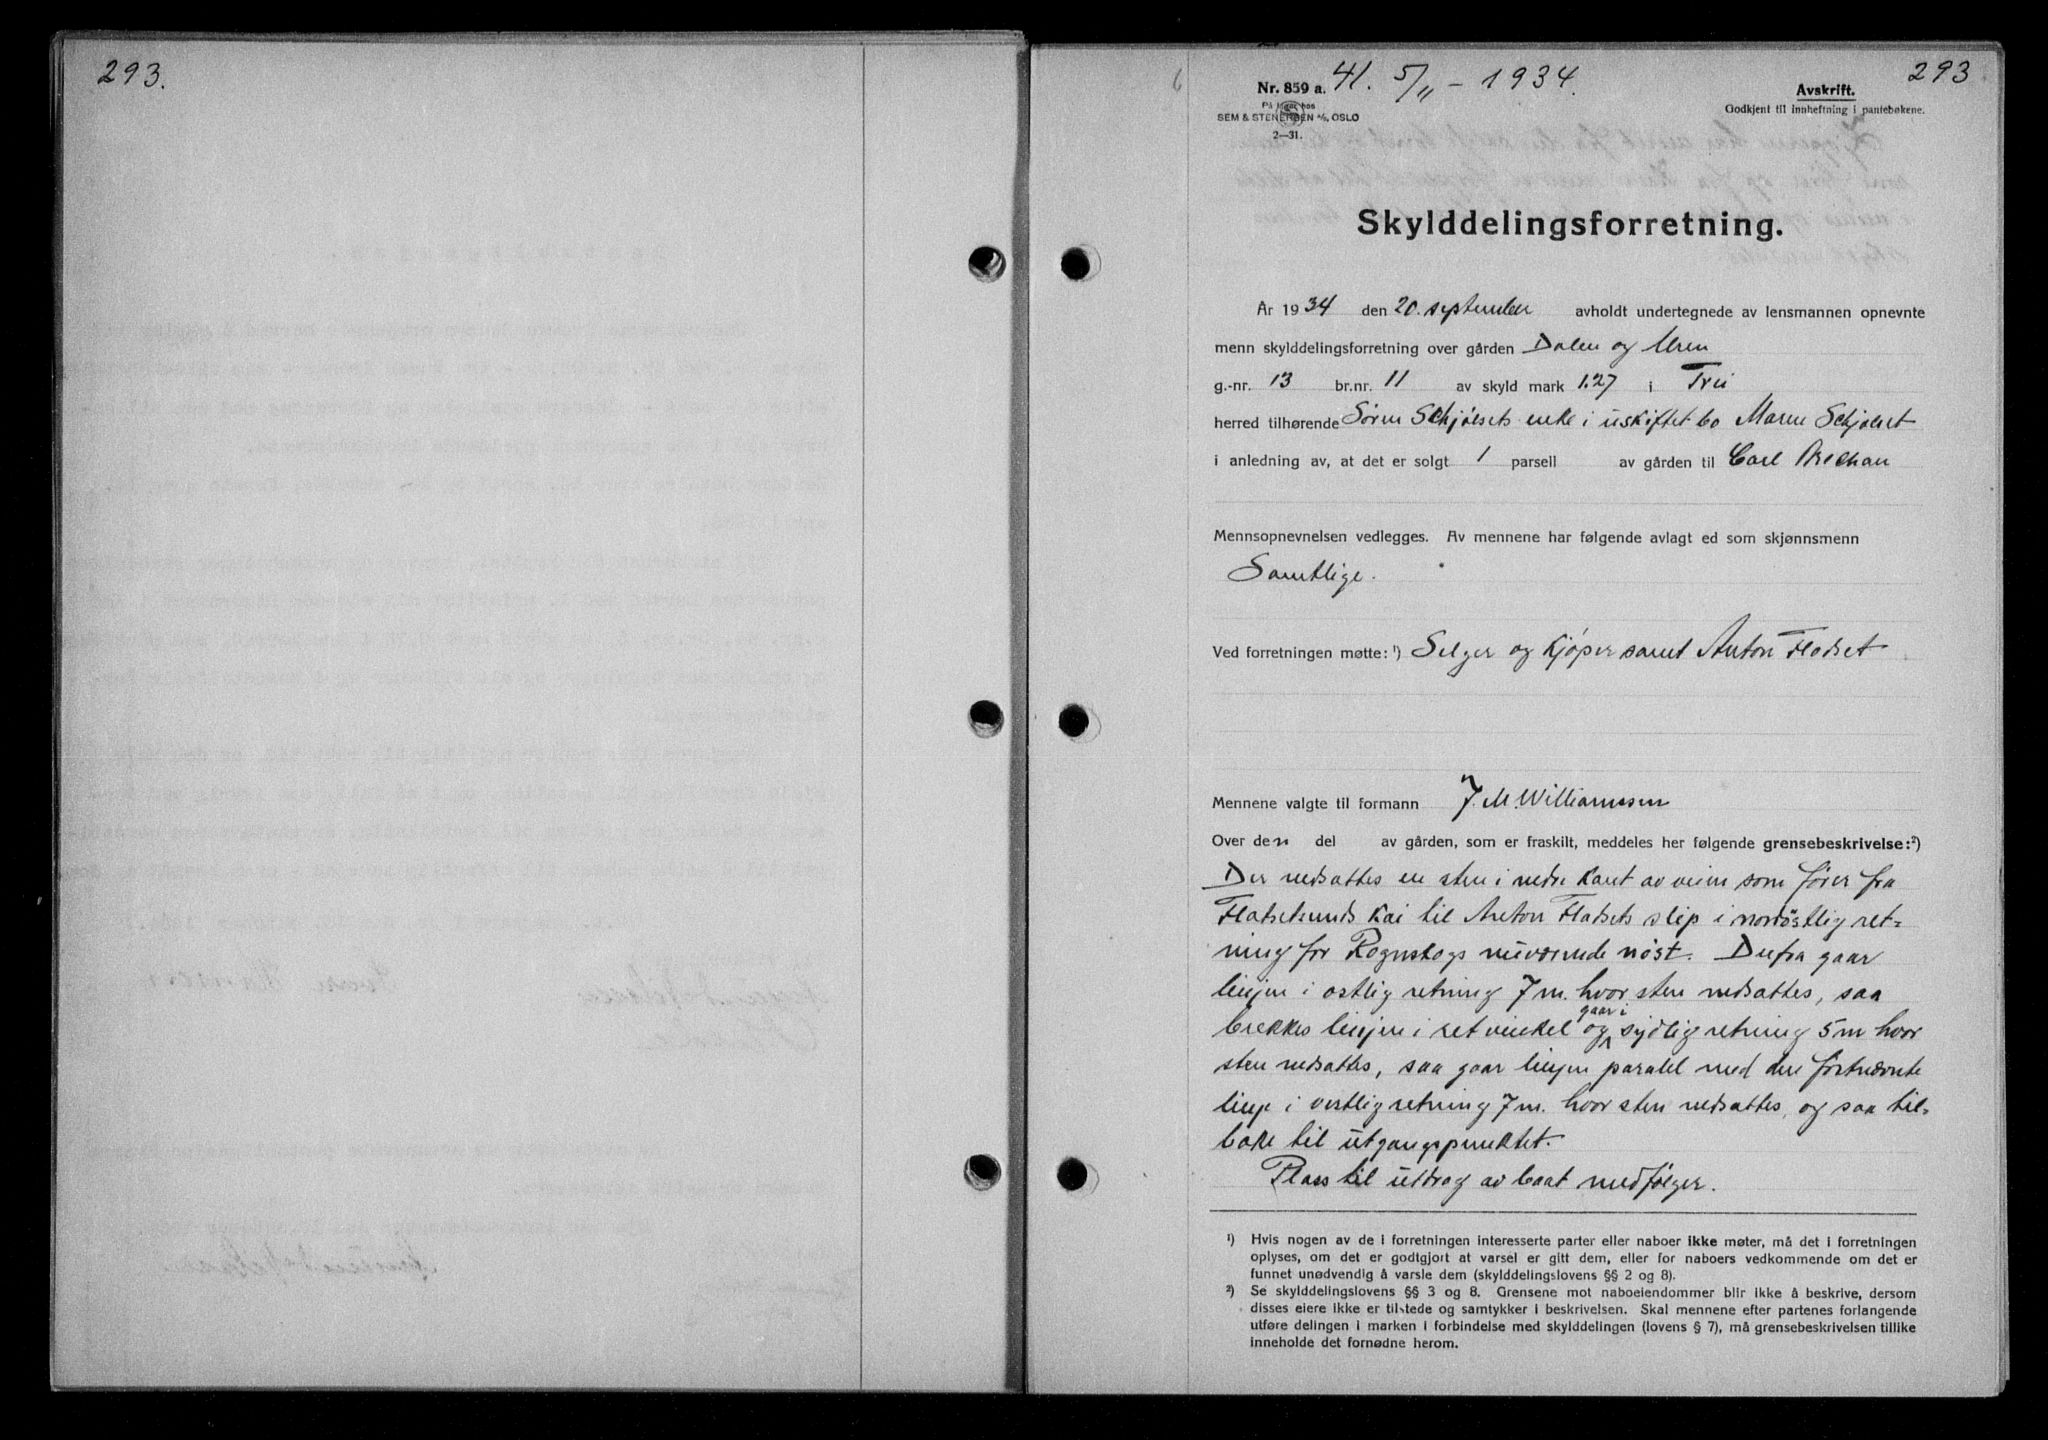 293.
Nr. 859 a. 41. 5/11 - 1934.
På lager hos
SEM & STENERSEN A/S, OSLO
2—31.
Avskrift.
Godkjent til innheftning i pantebøkene.
293
Skylddelingsforretning.
År 1934 den 20. september avholdt undertegnede av lensmannen opnevnte
menn skylddelingsforretning over gården Dalen og Uren
g.-nr. 13 br.nr. 11 av skyld mark 1.27 i
herred tilhørende Søren Schjølsets enke i uskiftet bo Maren Schjølset
i anledning av, at det er solgt 1 parsell av gården til Carl
Mennsopnevnelsen vedlegges. Av mennene har følgende avlagt ed som skjønnsmenn
Samtlige.
Ved forretningen møtte: ¹) Selger og kjøper samt Anton Flatset
Mennene valgte til formann J. M. Williamssen
Over den del av gården, som er fraskilt, meddeles her følgende grensebeskrivelse: ²)
Der nedsattes en sten i nedre kant av veien som fører fra
Flatsetsunds kai til Anton Flatsets slip i nordöstlig ret-
ning for Rognskogs nuværende nöst. Derfra gaar
linjen i ostlig retning 7 m. hvor sten nedsattes, saa
brekkes linjen i ret vinkel og gaar i sydlig retning 5 m hvor
sten nedsattes, saa gaar linjen paralel med den førstnævnte
linje i vestlig retning 7 m. hvor sten nedsattes, og saa til-
bake til utgangspunktet.
Plass til utdrag av baat medfølger.
¹) Hvis nogen av de i forretningen interesserte parter eller naboer ikke møter, må det i forretningen
oplyses, om det er godtgjort at varsel er gitt dem, eller for naboers vedkommende om det er
funnet unødvendig å varsle dem (skylddelingslovens §§ 2 og 8).
²) Se skylddelingslovens §§ 3 og 8. Grensene mot naboeiendommer blir ikke å beskrive, dersom
disses eiere ikke er tilstede og samtykker i beskrivelsen. Skal mennene efter partenes forlangende
utføre delingen i marken i forbindelse med skylddelingen (lovens § 7), må grensebeskrivelsen tillike
inneholde det fornødne herom.